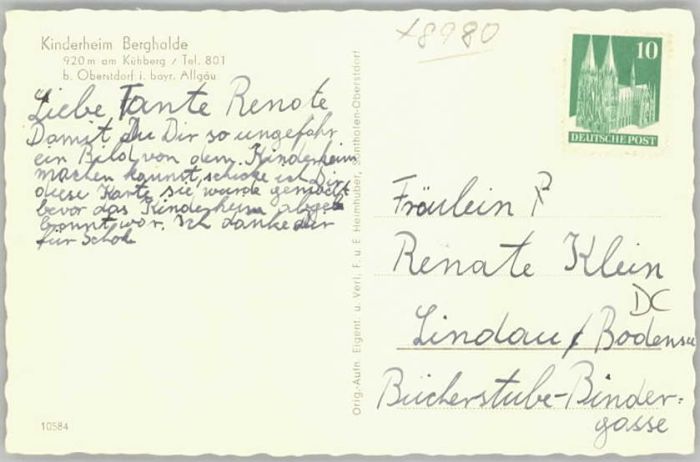 Kinderheim Berghalde
920 m am Kühberg / Tel. 801
b. Oberstdorf i. bayr. Allgäu
Liebe Tante Renate
Damit Du Dir so ungefähr
ein Bild von dem Kinderheim
machen kannst, schicke ich Dir
diese Karte sie wurde gemacht
bevor das Kinderheim abge
brannt war. Ich danke dir
für Schok
10584
Orig.-Aufn. Eigent. u. Verl. F. u. E. Heimhuber, Sonthofen-Oberstdorf
x8980
10
DEUTSCHE POST
Fräulein
Renate Klein
DC
Lindau / Bodensee
Bücherstube-Binder=
gasse